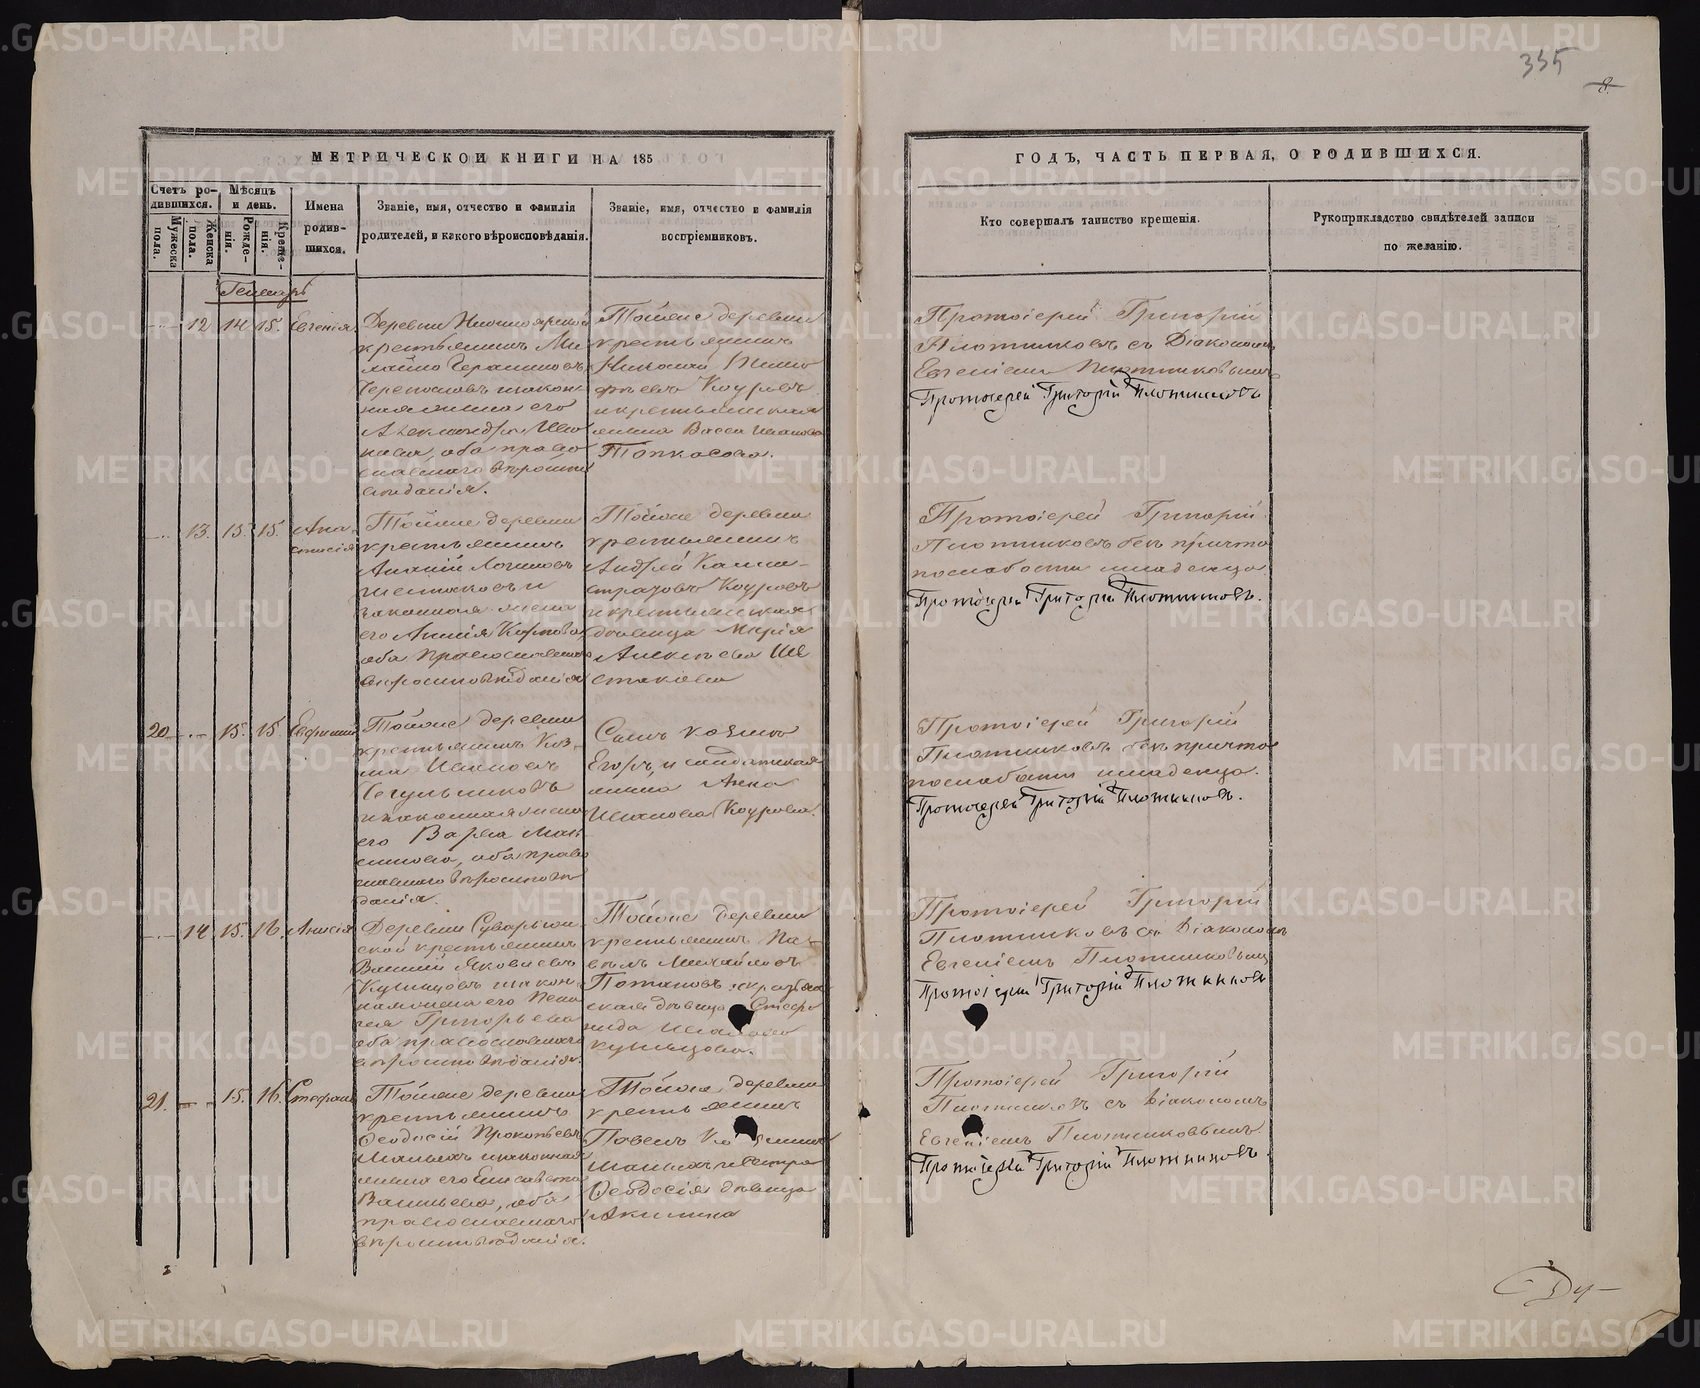 METRIKI.GASO-URAL.RU
335
8.
МЕТРИЧЕСКОЙ КНИГИ НА 185
ГОДЪ, ЧАСТЬ ПЕРВАЯ, О РОДИВШИХСЯ.
Счетъ ро-
дившихся.
Мужеска
пола.
Женска
пола.
Мѣсяцъ
и день.
Рожде-
нія.
Креще-
нія.
Имена
родив-
шихся.
Званіе, имя, отчество и фамилія
родителей, и какого вѣроисповѣданія.
Званіе, имя, отчество и фамилія
воспріемниковъ.
Кто совершалъ таинство крещенія.
Рукоприкладство свидѣтелей записи
по желанію.
Генварь
12 14. 15. Евгенія
Деревни
крестьянинъ Ми
хайло
законъ
ная жена его
Александра Ива
нова, оба право
славнаго вѣроиспо
вѣданія.
Тойже деревни
крестьянинъ
Николай Тимо
фѣевъ Коуровъ
и крестьянская
жена Васса Иванова
Топкасова.
Протоіерей Григорій
Плотниковъ съ Діакономъ
Евгеніемъ Плотниковымъ
Протоіерей Григорій Плотниковъ
13. 15. 15. Ана-
стасія
Тойже деревни
крестьянинъ
Логиновъ
Шестаковъ и
законная жена
его Карпова,
оба Православнаго
вѣроисповѣданія
Тойже деревни
крестьянинъ
Андрей Кали-
стратовъ Коуровъ
и крестьянская
дѣвица Марія
Алексѣева Ше
стакова
Протоіерей Григорій
Плотниковъ безъ причта
по слабости младенца.
Протоіерей Григорій Плотниковъ.
20 15. 15. Евфимій
Тойже деревни
крестьянинъ Коз-
ма Ивановъ
и законная жена
его Варвара Мак
симова, оба право
славнаго вѣроисповѣ
данія.
Сынъ Козмы
Егоръ, и солдатская
жена Анна
Иванова Коурова.
Протоіерей Григорій
Плотниковъ безъ причта
по слабости младенца.
Протоіерей Григорій Плотниковъ.
14 15. 16. Анисія
Деревни
крестьянинъ
Василій Яковлевъ
Кузнецовъ и закон
ная жена его Пела
гея Григорьева
оба православнаго
вѣроисповѣданія.
Тойже деревни
крестьянинъ Па-
велъ Михайловъ
Потаповъ и крестьян
ская дѣвица Стефа
нида Иванова
Кузнецова.
Протоіерей Григорій
Плотниковъ съ Діакономъ
Евгеніемъ Плотниковымъ
Протоіерей Григорій Плотниковъ
21. 15. 16. Стефанъ
Тойже деревни
крестьянинъ
Ѳеодосій Прокопьевъ
и законная
жена его Елисавета
Васильева, оба
православнаго
вѣроисповѣданія.
Тойже деревни
крестьянинъ
Павелъ
и сестра
Ѳеодосія дѣвица
Акилина
Протоіерей Григорій
Плотниковъ съ Діакономъ
Евгеніемъ Плотниковымъ
Протоіерей Григорій Плотниковъ